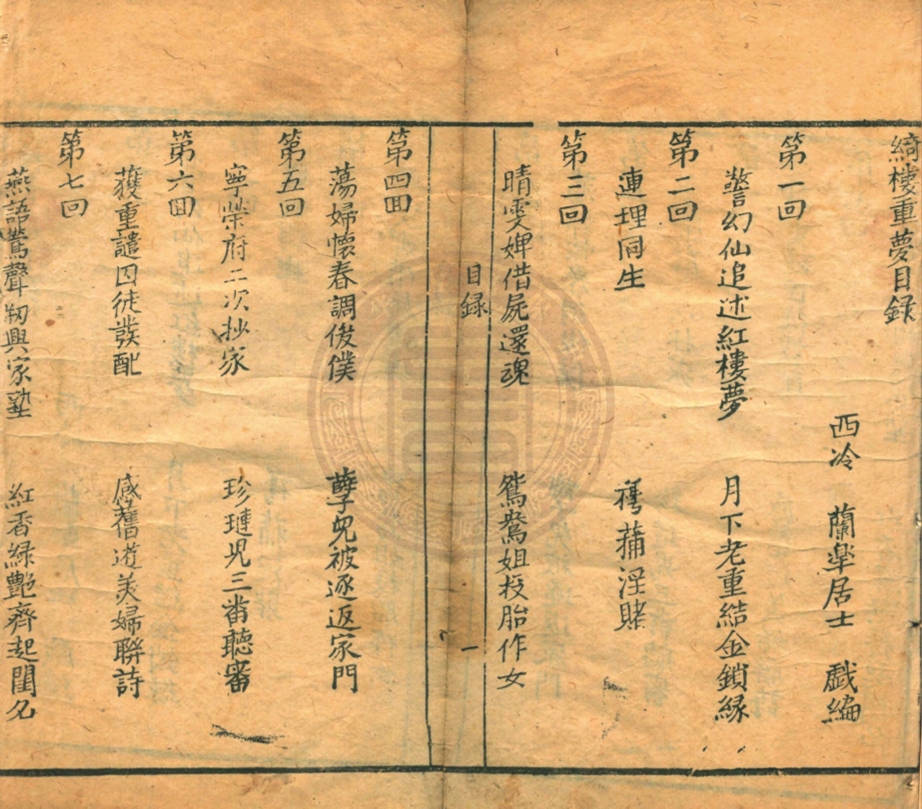 綺樓重夢目録
西冷 蘭皐居士 戲編
第一回
警幻仙追述紅樓夢 月下老重結金鎖緣
第二回
連理同生 摴蒱淫賭
第三回
晴雯婢借屍還魂 鴛鴦姐投胎作女
目録 一
第四囬
蕩婦懷春調俊僕 孽兒被逐返家門
第五回
寧榮府二次抄家 珍璉児三畨聽審
第六囬
獲重譴囚徒發配 感舊逰美婦聯詩
第七回
燕語鶯聲剏興家塾 紅香緑艶齊起閨名